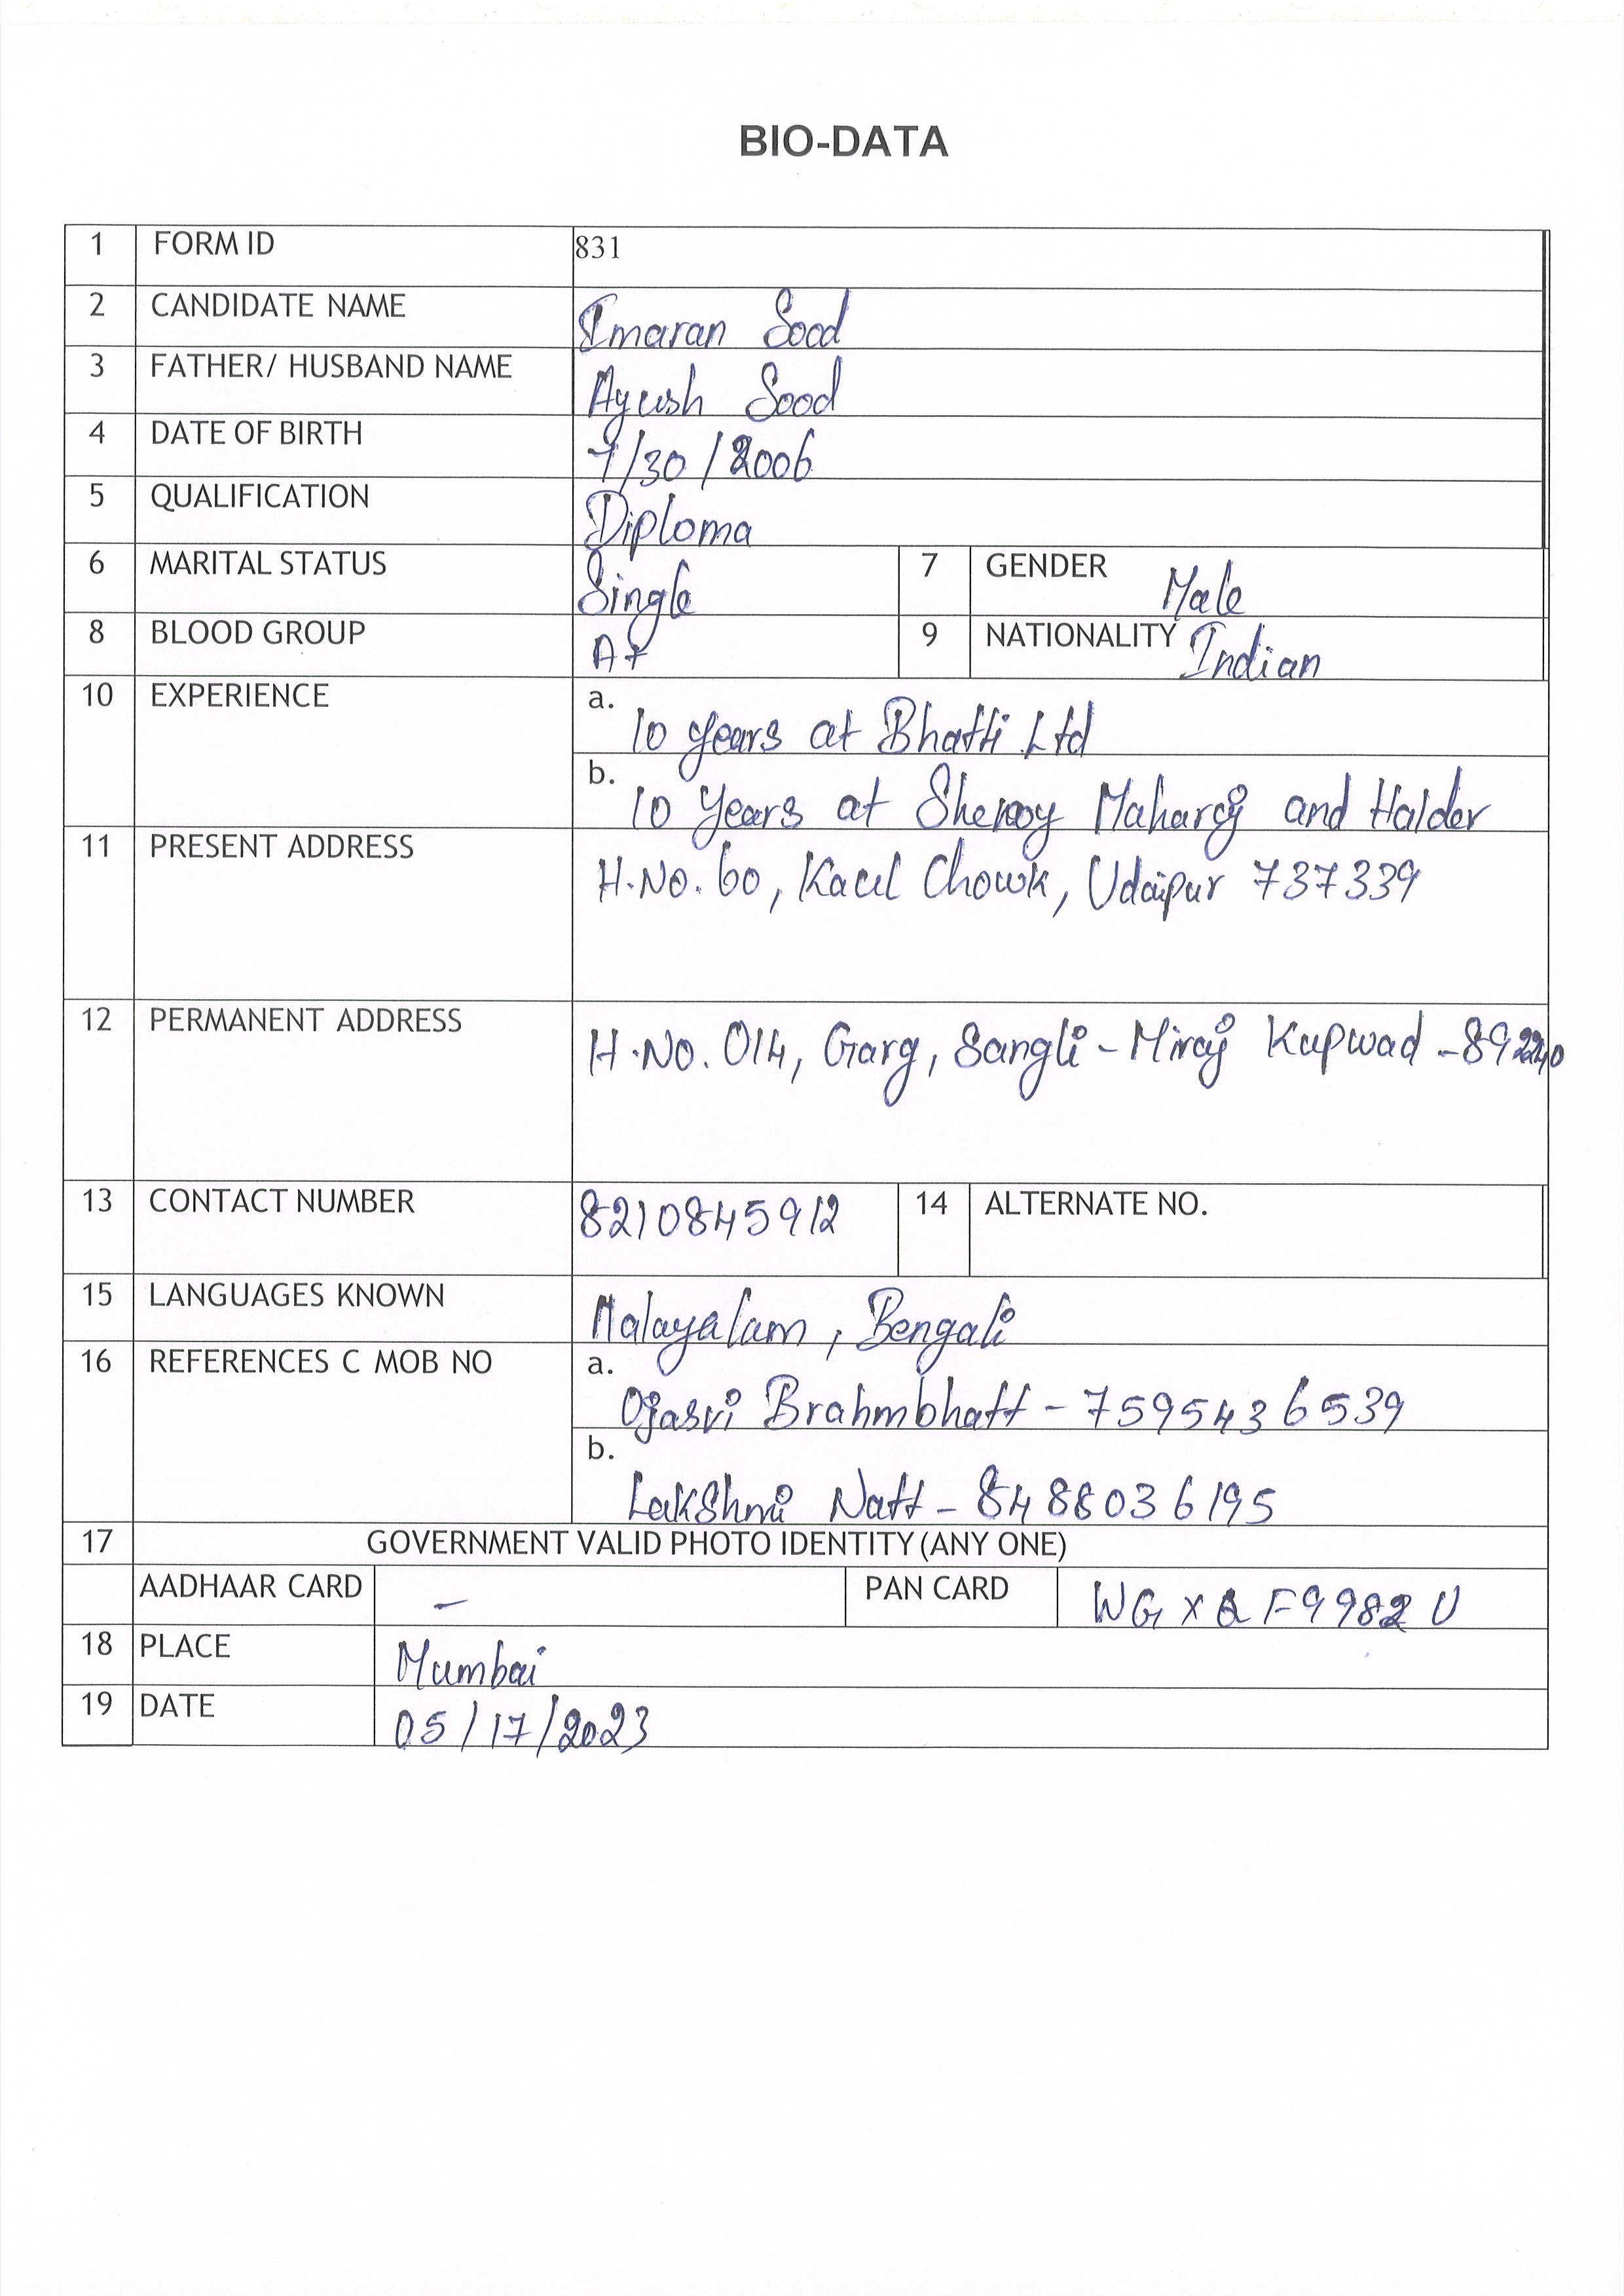 BIO-DATA
1 FORM ID 831
2 CANDIDATE NAME Imaran Sood
3 FATHER/ HUSBAND NAME Ayush Sood
4 DATE OF BIRTH 7/30/2006
5 QUALIFICATION Diploma
6 MARITAL STATUS Single 7 GENDER Male
8 BLOOD GROUP A+ 9 NATIONALITY Indian
10 EXPERIENCE a. 10 years at Bhatti Ltd
b. 10 Years at Shenoy Maharaj and Halder
11 PRESENT ADDRESS H.No. 60, Kaul Chowk, Udaipur 737339
12 PERMANENT ADDRESS H.No. 014, Garg, Sangli-Miraj Kupwad -892240
13 CONTACT NUMBER 8210845912 14 ALTERNATE NO.
15 LANGUAGES KNOWN Malayalam, Bengali
16 REFERENCES C MOB NO a. Ojasvi Brahmbhatt - 7595436539
b. Lakshmi Natt - 8488036195
17 GOVERNMENT VALID PHOTO IDENTITY (ANY ONE)
AADHAAR CARD - PAN CARD WGXQF9982U
18 PLACE Mumbai
19 DATE 05/17/2023